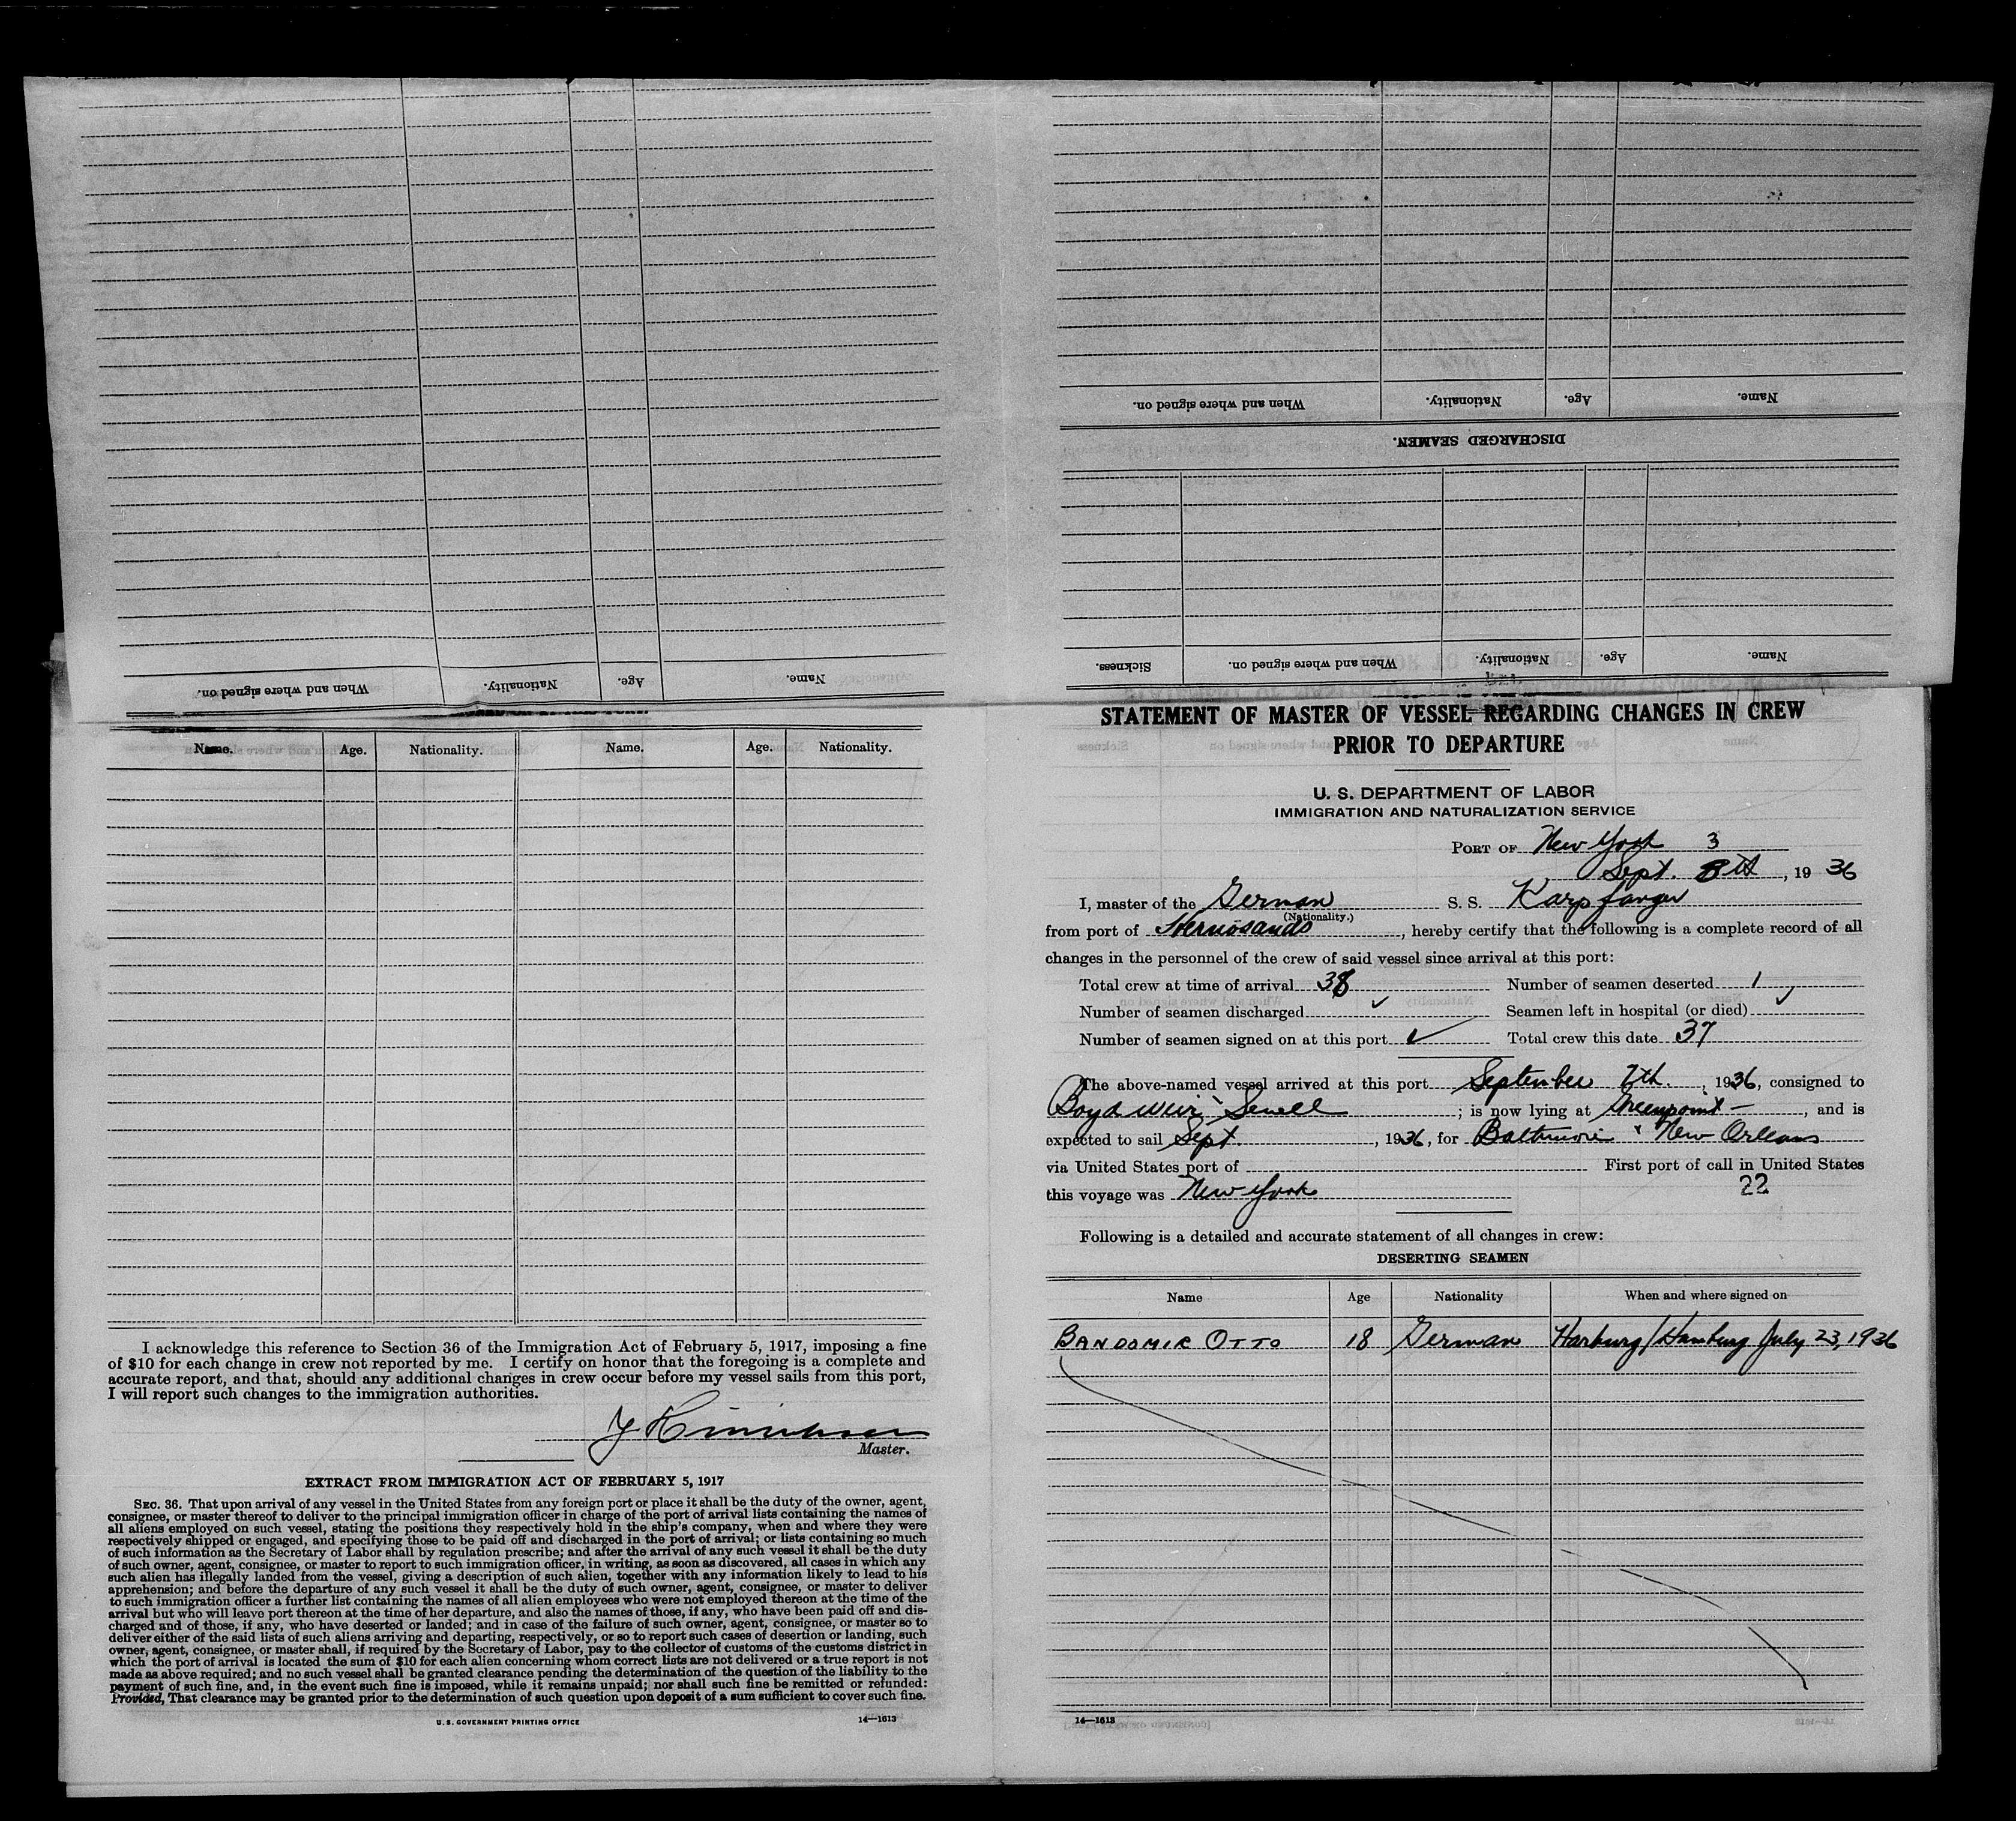 When and where signed on.
Nationality.
Age.
Name.
DISCHARGED SEAMEN.
Name.
Age.
Nationality.
When and where signed on.
Sickness.
Name.
Age.
Nationality.
When and where signed on.
Name. Age. Nationality. Name. Age. Nationality.
I acknowledge this reference to Section 36 of the Immigration Act of February 5, 1917, imposing a fine
of $10 for each change in crew not reported by me. I certify on honor that the foregoing is a complete and
accurate report, and that, should any additional changes in crew occur before my vessel sails from this port,
I will report such changes to the immigration authorities.
Master.
EXTRACT FROM IMMIGRATION ACT OF FEBRUARY 5, 1917
SEC. 36. That upon arrival of any vessel in the United States from any foreign port or place it shall be the duty of the owner, agent,
consignee, or master thereof to deliver to the principal immigration officer in charge of the port of arrival lists containing the names of
all aliens employed on such vessel, stating the positions they respectively hold in the ship's company, when and where they were
respectively shipped or engaged, and specifying those to be paid off and discharged in the port of arrival; or lists containing so much
of such information as the Secretary of Labor shall by regulation prescribe; and after the arrival of any such vessel it shall be the duty
of such owner, agent, consignee, or master to report to such immigration officer, in writing, as soon as discovered, all cases in which any
such alien has illegally landed from the vessel, giving a description of such alien, together with any information likely to lead to his
apprehension; and before the departure of any such vessel it shall be the duty of such owner, agent, consignee, or master to deliver
to such immigration officer a further list containing the names of all alien employees who were not employed thereon at the time of the
arrival but who will leave port thereon at the time of her departure, and also the names of those, if any, who have been paid off and dis-
charged and of those, if any, who have deserted or landed; and in case of the failure of such owner, agent, consignee, or master so to
deliver either of the said lists of such aliens arriving and departing, respectively, or so to report such cases of desertion or landing, such
owner, agent, consignee, or master shall, if required by the Secretary of Labor, pay to the collector of customs of the customs district in
which the port of arrival is located the sum of $10 for each alien concerning whom correct lists are not delivered or a true report is not
made as above required; and no such vessel shall be granted clearance pending the determination of the question of the liability to the
payment of such fine, and, in the event such fine is imposed, while it remains unpaid; nor shall such fine be remitted or refunded:
Provided, That clearance may be granted prior to the determination of such question upon deposit of a sum sufficient to cover such fine.
U. S. GOVERNMENT PRINTING OFFICE 14—1613
STATEMENT OF MASTER OF VESSEL REGARDING CHANGES IN CREW
PRIOR TO DEPARTURE
U. S. DEPARTMENT OF LABOR
IMMIGRATION AND NATURALIZATION SERVICE
PORT OF New York 3
Sept. 8th, 1936
I, master of the German S. S. Karpfanger
(Nationality.)
from port of Hernösands, hereby certify that the following is a complete record of all
changes in the personnel of the crew of said vessel since arrival at this port:
Total crew at time of arrival 38 Number of seamen deserted 1
Number of seamen discharged ✓ Seamen left in hospital (or died) ✓
Number of seamen signed on at this port ✓ Total crew this date 37
The above-named vessel arrived at this port September 7th, 1936, consigned to
Boyd Weir & Sewell; is now lying at Greenpoint —, and is
expected to sail Sept, 1936, for Baltimore & New Orleans
via United States port of First port of call in United States
this voyage was New York 22
Following is a detailed and accurate statement of all changes in crew:
DESERTING SEAMEN
Name Age Nationality When and where signed on
BANDOMIR OTTO 18 German Harburg/Hamburg July 23, 1936
14—1613